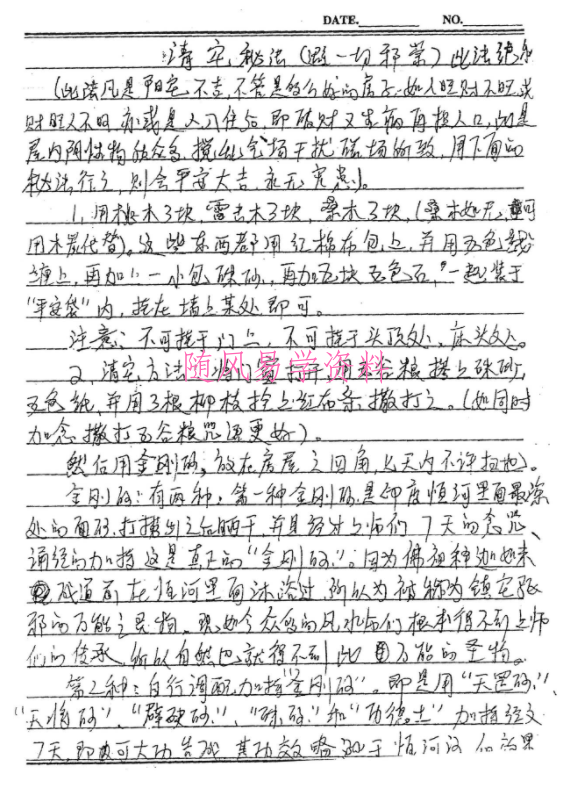 DATE.________ NO.________
清宅秘法(与一切邪祟)此法绝
(此法凡是阳宅不吉,不管是什么的房子,如人旺财不旺或
财旺人不旺亦或是入住后即破财又生病再损人口,此是
屋内阴性物质众多,搅乱宅场干扰磁场所致,用下面的
秘法行之,则会平安大吉永无灾患)。
1,用桃木3块,雷击木3块,桑木3块,(桑木如无,可
用木炭代替)。这些东西都用红棉布包上,并用五色线
缠上,再加一小包硃砂,再加五块五色石,一起装于
"平安袋"内,挂在墙上某处即可。
注意:不可挂于门上,不可挂于头顶处,床头处。
随风易学资料
2,清宅方法:将门窗打开用五谷粮拌上硃砂,
五色纸,并用3根柳枝拴上红布条撒打之。(如同时
加念撒打五谷粮咒还更好)。
然后用金刚砂,放在房屋之四角,七天内不许扫地)。
金刚砂:有两种,第一种金刚砂是印度恒河里面最深
处的面砂,打捞出之后晒干,并且经过上师们7天的念咒、
诵经的加持这是真正的"金刚砂"。因为佛祖释迦如来
成道前在恒河里面沐浴过所以为被称为镇宅驱
邪的万能之灵物,现如今众多的风水师们根本得不到上师
们的传承,所以自然也就得不到此万能的圣物。
第二种:自行调配加持"金刚砂"。即是用"天罡砂"、
"天将砂"、"辟砂"、"硃砂"和"功德土"加持经文
7天,即可大功告成,其功效略逊于恒河沙的效果